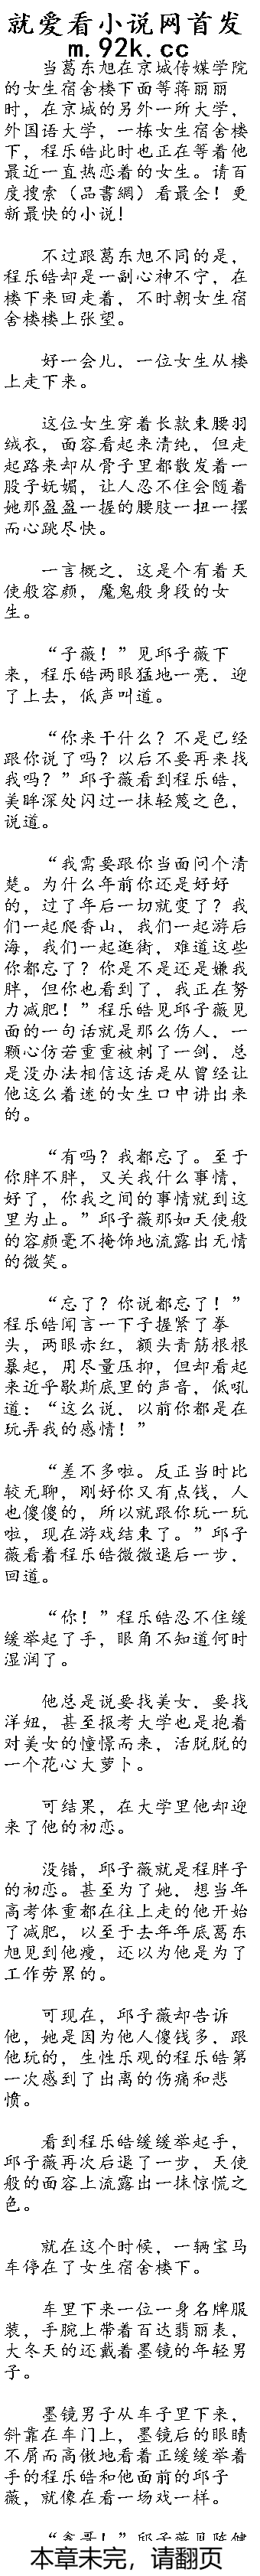 就爱看小说网首发
m.92k.cc
当葛东旭在京城传媒学院
的女生宿舍楼下面等蒋丽丽
时，在京城的另外一所大学，
外国语大学，一栋女生宿舍楼
下，程乐皓此时也正在等着他
最近一直热恋着的女生。请百
度搜索（品書網）看最全！更
新最快的小说！
不过跟葛东旭不同的是，
程乐皓却是一副心神不宁，在
楼下来回走着，不时朝女生宿
舍楼楼上张望。
好一会儿，一位女生从楼
上走下来。
这位女生穿着长款束腰羽
绒衣，面容看起来清纯，但走
起路来却从骨子里都散发着一
股子妩媚，让人忍不住会随着
她那盈盈一握的腰肢一扭一摆
而心跳尽快。
一言概之，这是个有着天
使般容颜，魔鬼般身段的女
生。
“子薇！”见邱子薇下
来，程乐皓两眼猛地一亮，迎
了上去，低声叫道。
“你来干什么？不是已经
跟你说了吗？以后不要再来找
我吗？”邱子薇看到程乐皓，
美眸深处闪过一抹轻蔑之色，
说道。
“我需要跟你当面问个清
楚。为什么年前你还是好好
的，过了年后一切就变了？我
们一起爬香山，我们一起游后
海，我们一起逛街，难道这些
你都忘了？你是不是还是嫌我
胖，但你也看到了，我正在努
力减肥！”程乐皓见邱子薇见
面的一句话就是那么伤人，一
颗心仿若重重被刺了一剑，总
是没办法相信这话是从曾经让
他这么着迷的女生口中讲出来
的。
“有吗？我都忘了。至于
你胖不胖，又关我什么事情，
好了，你我之间的事情就到这
里为止。”邱子薇那如天使般
的容颜毫不掩饰地流露出无情
的微笑。
“忘了？你说都忘了！”
程乐皓闻言一下子握紧了拳
头，两眼赤红，额头青筋根根
暴起，用尽量压抑，但却看起
来近乎歇斯底里的声音，低吼
道：“这么说，以前你都是在
玩弄我的感情！”
“差不多啦。反正当时比
较无聊，刚好你又有点钱，人
也傻傻的，所以就跟你玩一玩
啦，现在游戏结束了。”邱子
薇看着程乐皓微微退后一步，
回道。
“你！”程乐皓忍不住缓
缓举起了手，眼角不知道何时
湿润了。
他总是说要找美女，要找
洋妞，甚至报考大学也是抱着
对美女的憧憬而来，活脱脱的
一个花心大萝卜。
可结果，在大学里他却迎
来了他的初恋。
没错，邱子薇就是程胖子
的初恋。甚至为了她，想当年
高考体重都在往上走的他开始
了减肥，以至于去年年底葛东
旭见到他瘦，还以为他是为了
工作劳累的。
可现在，邱子薇却告诉
他，她是因为他人傻钱多，跟
他玩的，生性乐观的程乐皓第
一次感到了出离的伤痛和悲
愤。
看到程乐皓缓缓举起手，
邱子薇再次后退了一步，天使
般的面容上流露出一抹惊慌之
色。
就在这个时候，一辆宝马
车停在了女生宿舍楼下。
车里下来一位一身名牌服
装，手腕上带着百达翡丽表，
大冬天的还戴着墨镜的年轻男
子。
墨镜男子从车子里下来，
斜靠在车门上，墨镜后的眼睛
不屑而高傲地看着正缓缓举着
手的程乐皓和他面前的邱子
薇，就像在看一场戏一样。
本章未完，请翻页